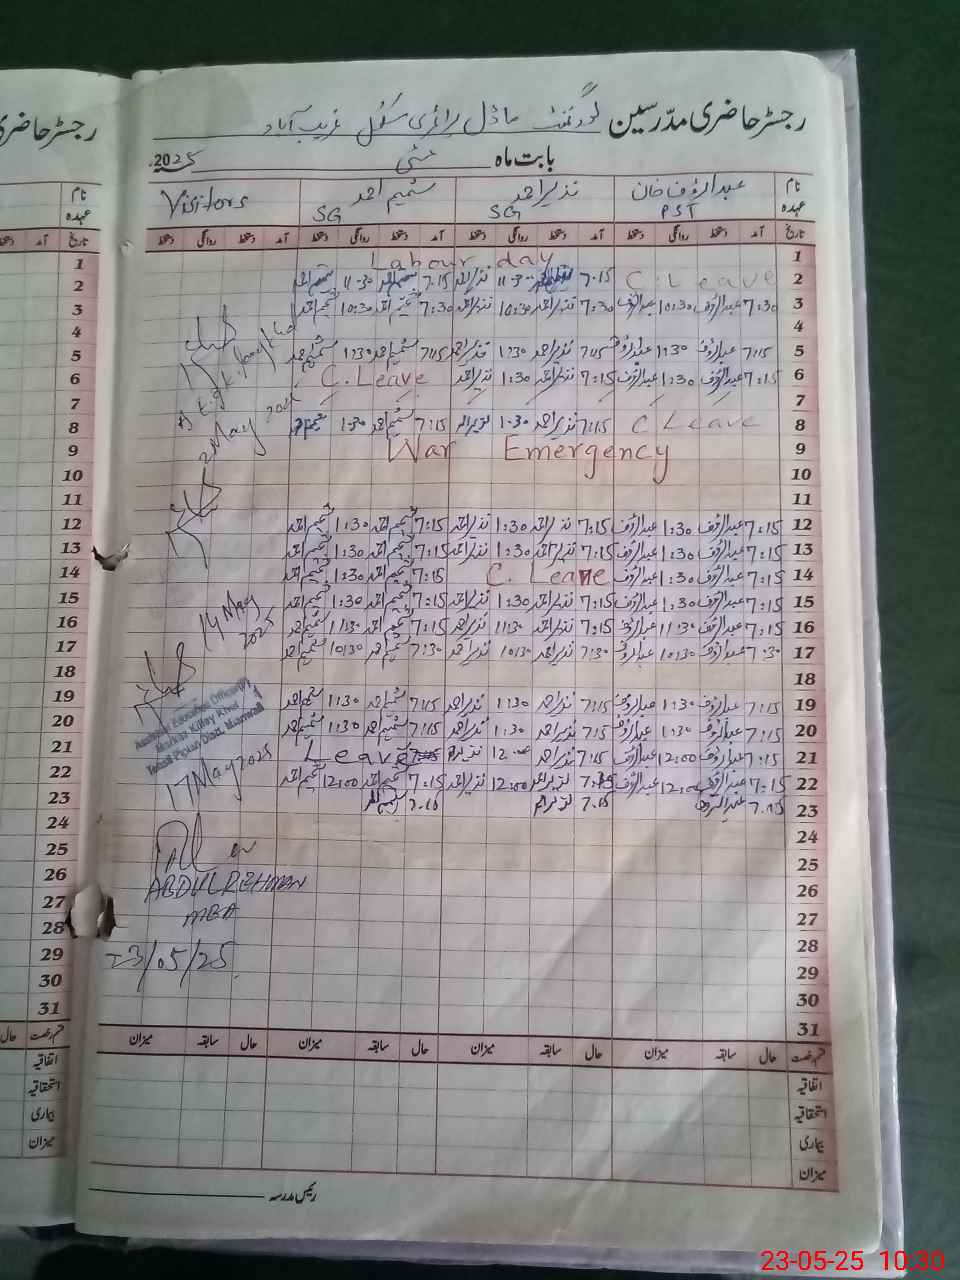 رجسٹر حاضری مدرسین گورنمنٹ ماڈل پرائمری سکول غریب آباد
رجسٹر حاضری
بابت ماہ مئی 2025ء
نام عبدالرؤف خان نذیر احمد شمیم احمد Visitors
عہدہ PST SG SG
تاریخ آمد دستخط روانگی دستخط آمد دستخط روانگی دستخط آمد دستخط روانگی دستخط آمد دستخط روانگی دستخط
1 Labour day
2 C. Leave 7:15 11:30 نذیر احمد 7:15 شمیم احمد 11:30 شمیم احمد
3 7:30 عبدالرؤف 10:30 عبدالرؤف 7:30 نذیر احمد 10:30 نذیر احمد 7:30 شمیم احمد 10:30 شمیم احمد
4
5 7:15 عبدالرؤف 1:30 عبدالرؤف 7:15 نذیر احمد 1:30 نذیر احمد 7:15 شمیم احمد 1:30 شمیم احمد
6 7:15 عبدالرؤف 1:30 عبدالرؤف 7:15 نذیر احمد 1:30 نذیر احمد C. Leave
7
8 C Leave 7:15 نذیر احمد 1:30 نذیر احمد 7:15 شمیم احمد 1:30 شمیم احمد
2 May 2025
9 War Emergency
10
11
12 7:15 عبدالرؤف 1:30 عبدالرؤف 7:15 نذیر احمد 1:30 نذیر احمد 7:15 شمیم احمد 1:30 شمیم احمد
13 7:15 عبدالرؤف 1:30 عبدالرؤف 7:15 نذیر احمد 1:30 نذیر احمد 7:15 شمیم احمد 1:30 شمیم احمد
14 7:15 عبدالرؤف 1:30 عبدالرؤف C. Leave 7:15 شمیم احمد 1:30 شمیم احمد
15 7:15 عبدالرؤف 1:30 عبدالرؤف 7:15 نذیر احمد 1:30 نذیر احمد 7:15 شمیم احمد 1:30 شمیم احمد
16 7:15 عبدالرؤف 11:30 عبدالرؤف 7:15 نذیر احمد 11:30 نذیر احمد 7:15 شمیم احمد 11:30 شمیم احمد
14 May 2025
17 7:30 عبدالرؤف 10:30 عبدالرؤف 7:30 نذیر احمد 10:30 نذیر احمد 7:30 شمیم احمد 10:30 شمیم احمد
18
19 7:15 عبدالرؤف 1:30 عبدالرؤف 7:15 نذیر احمد 1:30 نذیر احمد 7:15 شمیم احمد 1:30 شمیم احمد
20 7:15 عبدالرؤف 1:30 عبدالرؤف 7:15 نذیر احمد 1:30 نذیر احمد 7:15 شمیم احمد 1:30 شمیم احمد
Assistant Education Officer
Markaz
Tehsil Piplan Distt. Mianwali
21 7:15 عبدالرؤف 12:00 عبدالرؤف 7:15 نذیر احمد 12:00 نذیر احمد Leave
22 7:15 عبدالرؤف 12:00 عبدالرؤف نذیر احمد 12:00 نذیر احمد 7:15 شمیم احمد 12:00 شمیم احمد
17 May 2025
23 7.15 عبدالرؤف 7.15 نذیر احمد شمیم احمد
24
25
26
ABDUL REHMAN
MEA
27
28
23/05/25
29
30
31
قسم رخصت حال سابقہ میزان حال سابقہ میزان حال سابقہ میزان حال سابقہ میزان
اتفاقیہ
استحقاقیہ
بیماری
میزان
رئیس مدرسہ
23-05-25 10:30